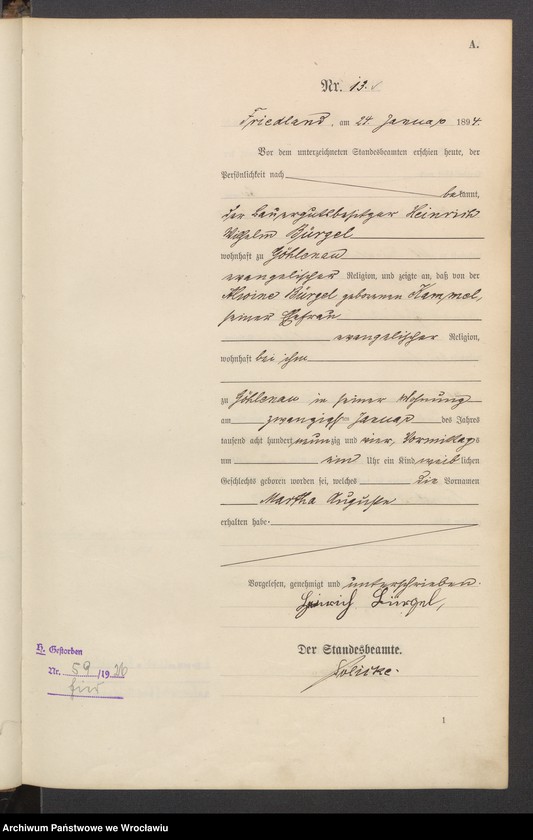 A.
Nr. 13.
Friedland, am 24. Januar 1894.
Vor dem unterzeichneten Standesbeamten erschien heute, der
Persönlichkeit nach
bekannt,
der Bauergutsbesitzer Heinrich
Wilhelm Bürgel
wohnhaft zu Göhlenau
evangelischer Religion, und zeigte an, daß von der
Alwine Bürgel geborenen Hammel,
seiner Ehefrau
evangelischer Religion,
wohnhaft bei ihm
zu Göhlenau in seiner Wohnung
am zwanzigsten Januar des Jahres
tausend acht hundert neunzig und vier, Vormittags
um ein Uhr ein Kind weiblichen
Geschlechts geboren worden sei, welches die Vornamen
Martha Auguste
erhalten habe.
Vorgelesen, genehmigt und unterschrieben.
Heinrich Bürgel,
Der Standesbeamte.
H. Gestorben
Nr. 59/1926
hier
1
Archiwum Państwowe we Wrocławiu